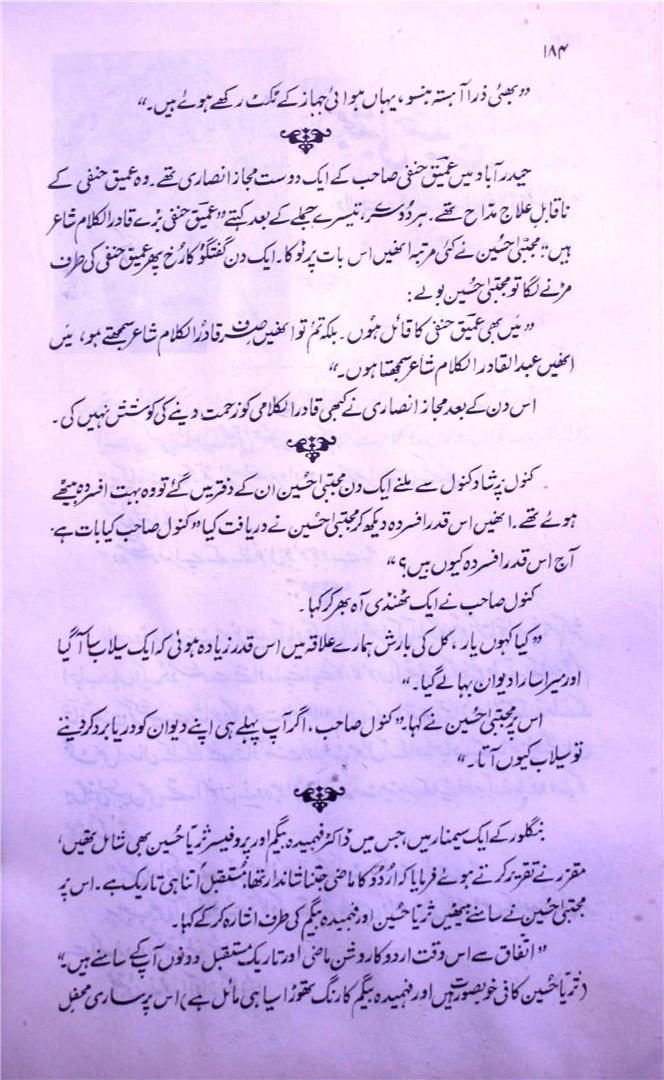 ۱۸۴
”بھئی ذرا آہستہ ہنسو، یہاں ہوائی جہاز کے ٹکٹ رکھے ہوئے ہیں۔“
حیدرآباد میں عمیق حنفی صاحب کے ایک دوست مجاز انصاری تھے۔ وہ عمیق حنفی کے
ناقابلِ علاج مداح تھے۔ ہر دوسرے، تیسرے جملے کے بعد کہتے ”عمیق حنفی بڑے قادرالکلام شاعر
ہیں“ مجتبیٰ حسین نے کئی مرتبہ انھیں اس بات پر ٹوکا۔ ایک دن گفتگو کا رُخ پھر عمیق حنفی کی طرف
مڑنے لگا تو مجتبیٰ حسین بولے:
”میں بھی عمیق حنفی کا قائل ہوں۔ بلکہ تم تو انھیں صرف قادرالکلام شاعر سمجھتے ہو، میں
انھیں عبدالقادر الکلام شاعر سمجھتا ہوں۔“
اس دن کے بعد مجاز انصاری نے کبھی قادرالکلامی کو زحمت دینے کی کوشش نہیں کی۔
کنول پرشاد کنول سے ملنے ایک دن مجتبیٰ حسین ان کے دفتر میں گئے تو وہ بہت افسردہ بیٹھے
ہوئے تھے۔ انھیں اس قدر افسردہ دیکھ کر مجتبیٰ حسین نے دریافت کیا ”کنول صاحب کیا بات ہے،
آج اس قدر افسردہ کیوں ہیں؟“
کنول صاحب نے ایک ٹھنڈی آہ بھر کر کہا۔
”کیا کہوں یار، کل کی بارش ہمارے علاقہ میں اس قدر زیادہ ہوئی کہ ایک سیلاب سا آگیا
اور میرا سارا دیوان بہا لے گیا۔“
اس پر مجتبیٰ حسین نے کہا۔ ”کنول صاحب، اگر آپ پہلے ہی اپنے دیوان کو دریا برد کر دیتے
تو سیلاب کیوں آتا۔“
بنگلور کے ایک سیمنار میں، جس میں ڈاکٹر فہمیدہ بیگم اور پروفیسر ثریا حسین بھی شامل تھیں،
مقرر نے تقریر کرتے ہوئے فرمایا کہ اردو کا ماضی جتنا شاندار تھا، مستقبل اتنا ہی تاریک ہے۔ اس پر
مجتبیٰ حسین نے سامنے بیٹھیں ثریا حسین اور فہمیدہ بیگم کی طرف اشارہ کر کے کہا۔
”اتفاق سے اس وقت اردو کا روشن ماضی اور تاریک مستقبل دونوں آپ کے سامنے ہیں۔“
(ثریا حسین کافی خوبصورت ہیں اور فہمیدہ بیگم کا رنگ تھوڑا سیاہی مائل ہے) اس پر ساری محفل